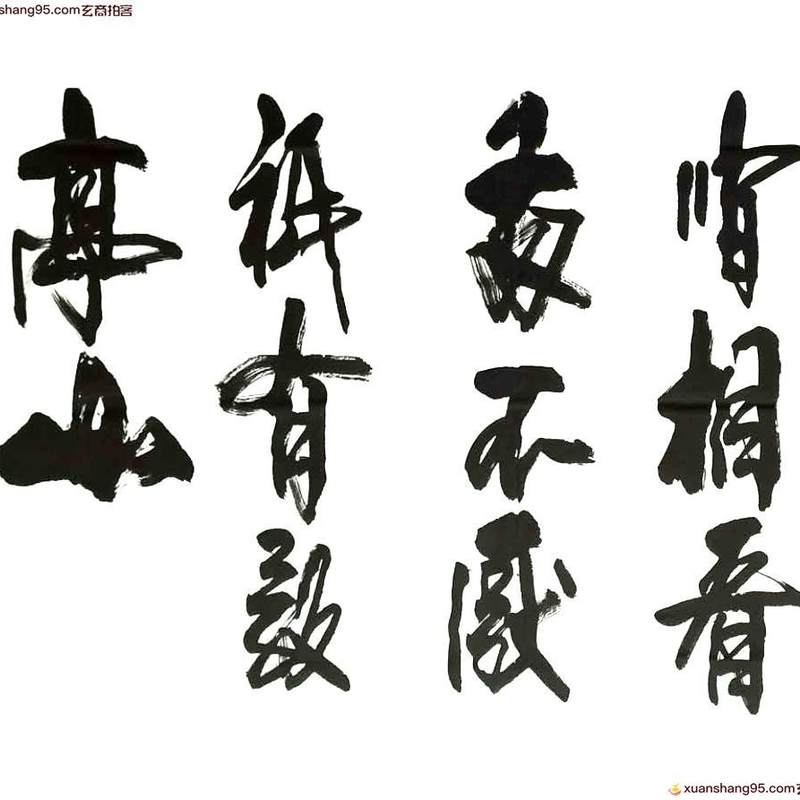 nshang95.com玄商拍客
閒相看
两不厭
祗有敬
亭山
xuanshang95.com玄